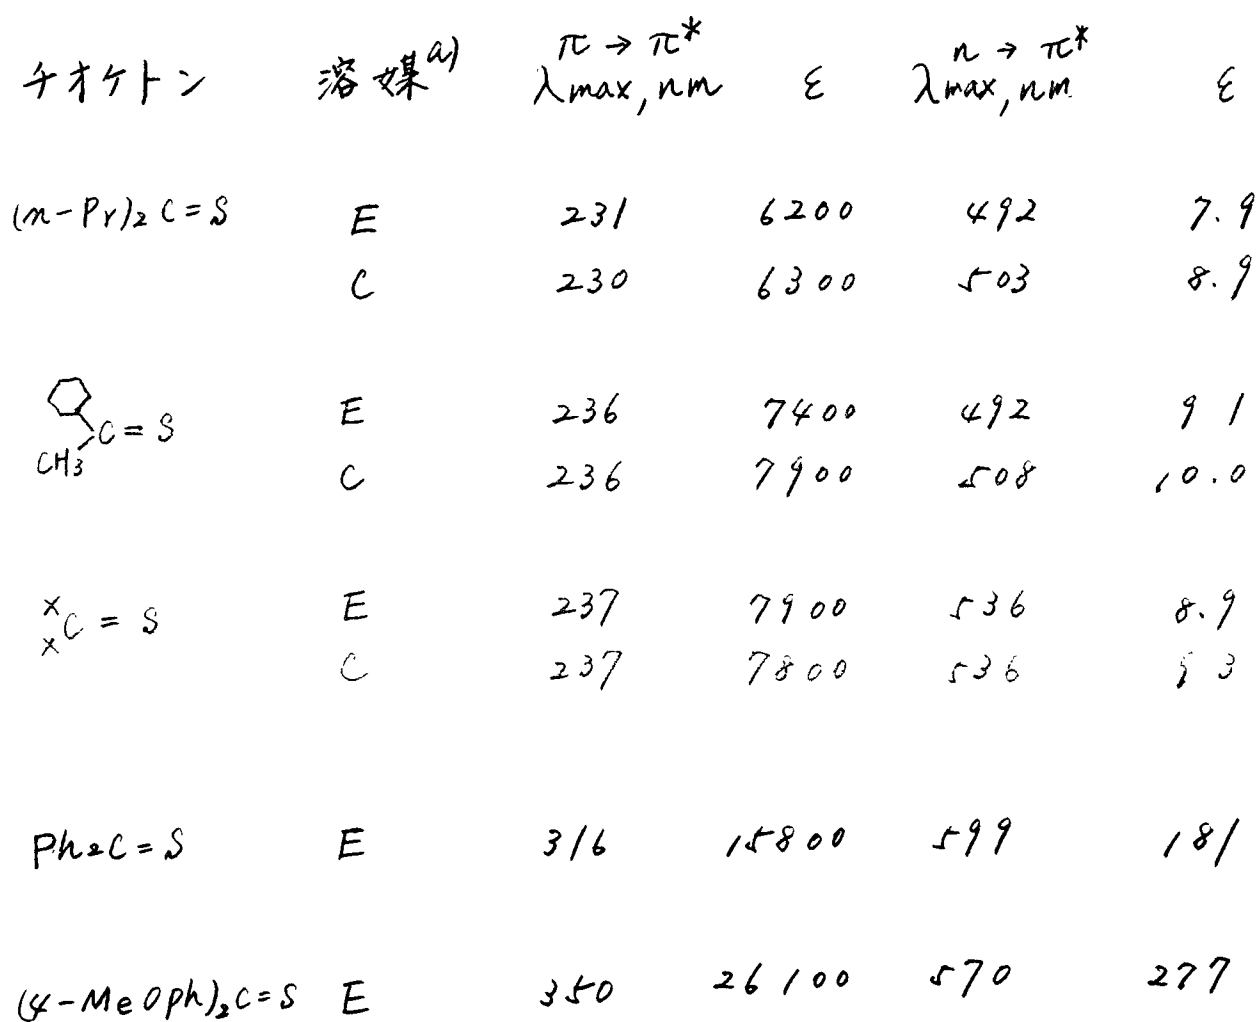 チオケトン 溶媒a) π→π* λmax,nm ε n→π* λmax,nm ε
(n-Pr)2C=S E 231 6200 492 7.9
C 230 6300 503 8.9
CH3 C=S E 236 7400 492 9 1
C 236 7900 508 10.0
x x C=S E 237 7900 536 8.9
C 237 7800 536 9 3
Ph2C=S E 316 15800 599 181
(4-MeOph)2C=S E 350 26100 570 277